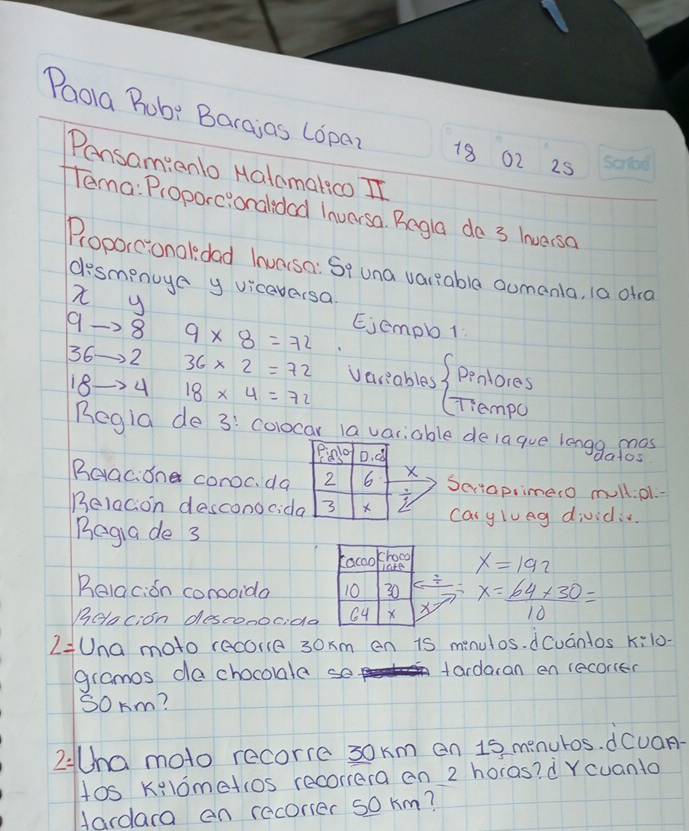 Paola Rubi Barajas López
18 02 25 Scribe
Pensamiento Matematico II
Tema: Proporcionalidad Inversa. Regla de 3 Inversa
Proporcionalidad Inversa: Si una variable aumenta, la otra
dismenuye y viceversa.
x y
9 → 8 9 x 8 = 72.
36 → 2 36 x 2 = 72
18 → 4 18 x 4 = 72
Ejemplo 1:
Variables { Pintores
Tiempo
Regla de 3: colocar la variable de la que tenga mas
datos
Relacione conocida
Relación desconocida
Regla de 3
2 6 x
3 x ÷
Seria primero multipli-
car y lueg dividir.
cacao chocolate
Relación conocida 10 30 ÷
Relación desconocida 64 x x
x = 192
x = 64 x 30 =
10
2= Una moto recorre 30km en 15 minutos. ¿Cuántos Kilo-
gramos de chocolate se tardaran en recorrer
50 km?
2= Una moto recorre 30 km en 15 minutos. ¿Cuan-
tos Kilómetros recorrera en 2 horas? ¿Y cuanto
tardara en recorrer 50 km?